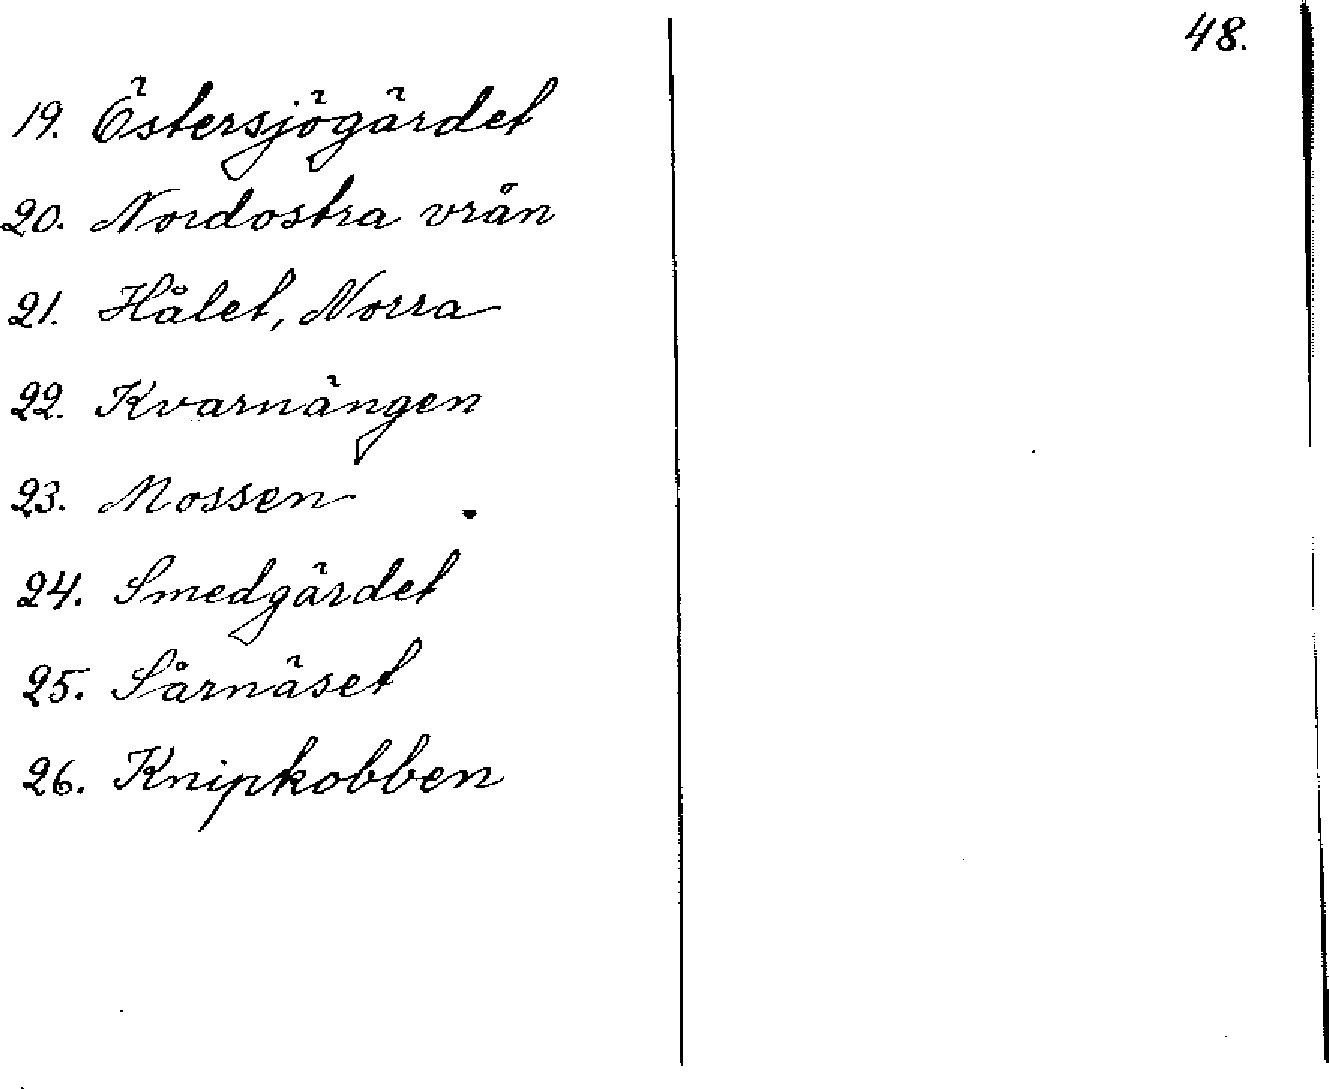 48.
19. Östersjögärdet
20. Nordostra vrån
21. Hålet, Norra
22. Kvarnängen
23. Mossen
24. Smedgärdet
25. Sårnäset
26. Knipkobben